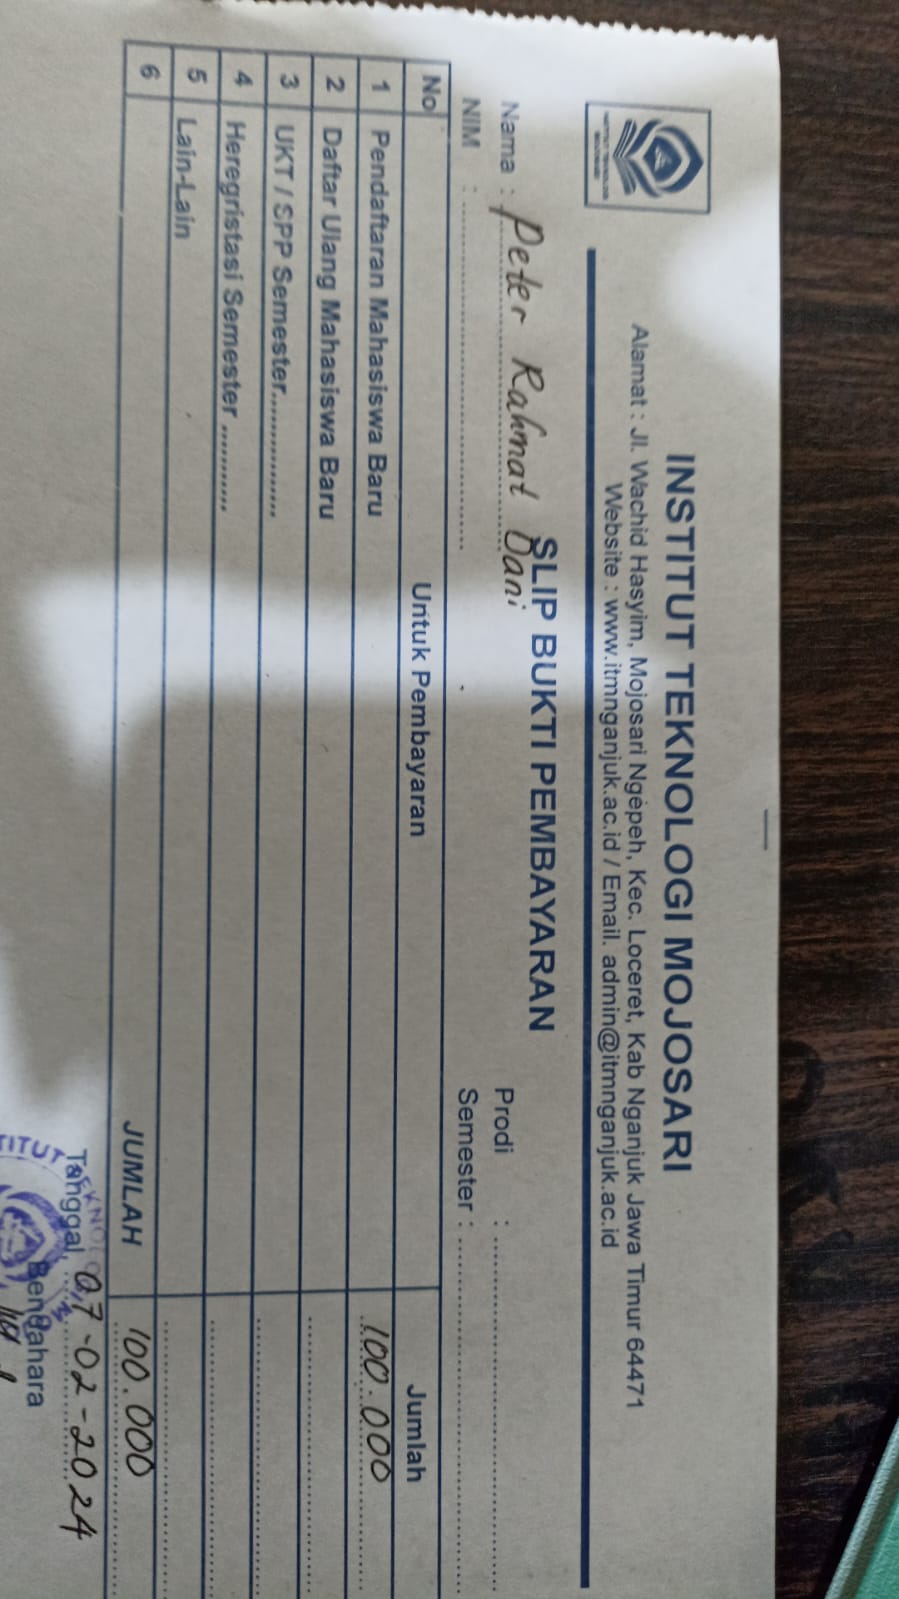 INSTITUT TEKNOLOGI MOJOSARI
Alamat : Jl. Wachid Hasyim, Mojosari Ngepeh, Kec. Loceret, Kab Nganjuk Jawa Timur 64471
Website : www.itmnganjuk.ac.id / Email. admin@itmnganjuk.ac.id
SLIP BUKTI PEMBAYARAN
Nama : Peter Rahmat Dani
Prodi :
NIM :
Semester :
No Untuk Pembayaran Jumlah
1 Pendaftaran Mahasiswa Baru 100.000
2 Daftar Ulang Mahasiswa Baru
3 UKT / SPP Semester..............
4 Heregristasi Semester ...........
5 Lain-Lain
6
JUMLAH 100.000
Tanggal, 07-02-2024
Bendahara